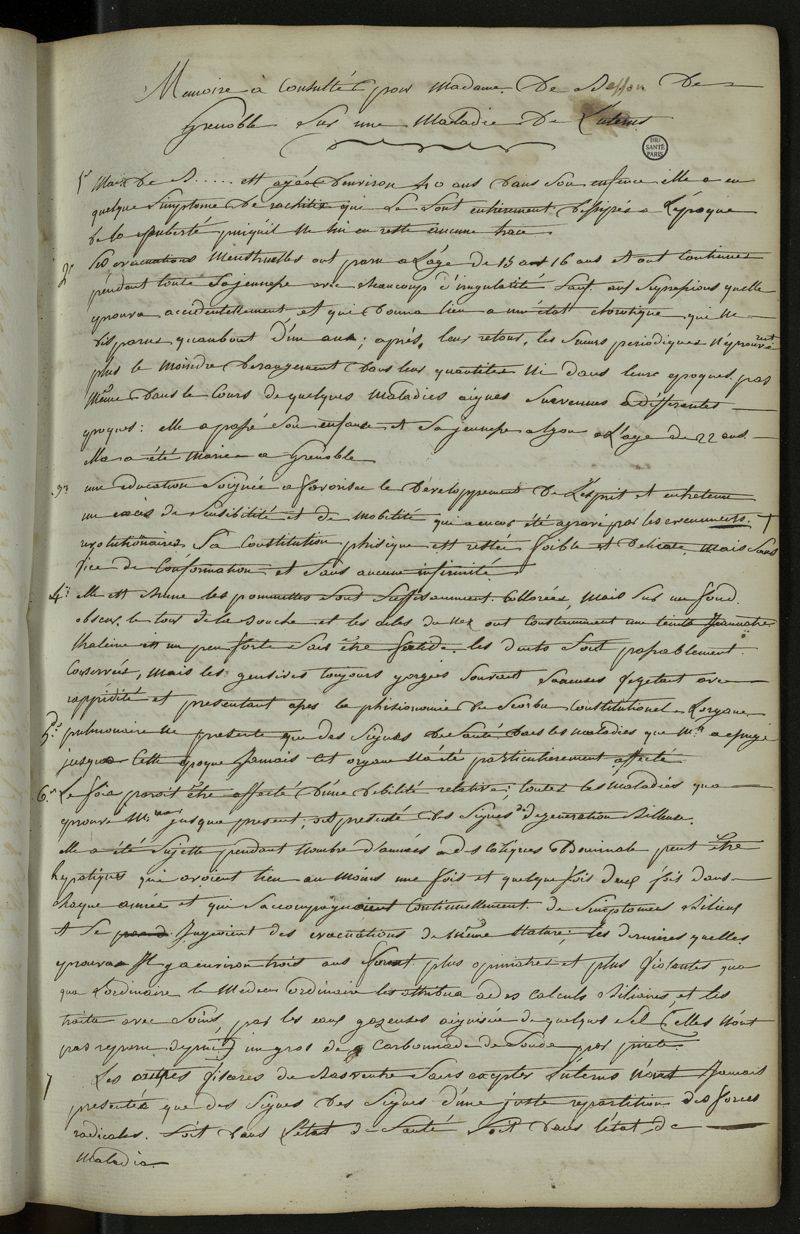 Memoire à Consulté pour Madame De Besson De
Grenoble Sur une Maladie De L'uterus
BIU
SANTÉ
PARIS
1er Made De B..... est agée D'environ 40 ans Dans Son enfance elle a eu
quelque Simptome De rachitis qui Se Sont entierement Dissipés a L'époque
De la puberté puisqu'il Ne lui en reste aucune trace
2e Ses evacuations Menstruelles ont paru a L'age de 15 a 16 ans et ont Continuer
pendant toute Sa jeunesse avec beaucoup d'irregularité Sauf une Supression quelle
eprouva accidentellement et qui Donna lieu a un état Chorotique qui Ne
Disparut quaubout D'un an; après, leur retour, les Sueurs periodiques N'éprouverent
plus le Moindre Derangement Dans leur quantités Ni dans leurs epoques pas
Même Dans le Cours de quelques Maladies aigues Survenues a differentes
epoques: elle a passé Son enfance et Sa jeunesse a Lyon a L'age de 22 ans
Elle a été Mariée a Grenoble
3e une education Soignée a favorisée le Développement De L'esprit et entretenu
un excès de Sensibilité et de Mobilité qui a encor été agravé par les evenements
revolutionaires Sa Constitution phisique est restée foible et Delicate, Mais Sans
vice de Conformation et Sans aucune infirmité
4e elle est brune les pommettes Sont Suffisamment Collorées, Mais Sur un fond
obscur, le tour de la Bouche et les ailes du Nez ont Constamment une teinte Jaunatre
L'haleine un peu forte Sans être fœtide. les dents Sont passablement
Conservées, Mais les gensives toujours gorgées Souvent Saneuses Vegetant avec
rappidité et presentant assés la phisionomie Du Scorbu Constitutionel
5e L'organe pulmonaire Ne presente que des Signes De Santé Dans les Maladies que Me a essuyé
jusqua Cette epoque Jamais Cet organe N'a été particulierement affecté
6e Le foie paroit être affecté D'une Debilité relative; toutes les Maladies qua
eprouvé Me jusque present, ont presenté Des Signes de degeneration Billieuse.
Elle a été Sujette pendant Nombre d'années a des Coliques Abdominale peut être
hepatiques qui avoient lieu au Moins une fois et quelque fois deux fois dans
chaque année et qui S'accompagnoient Continuellement de Simptomes Bilieux
et Se Jugeoient des evacuations de Même Nature; les dernieres quelles
eprouva Il y a environ trois ans furent plus opiniatres et plus Violantes que
que L'ordinaire le Medecin ordinaire les attribua a des Calculs Biliaires et les
traita avec Soins, par les eaux gazeuses aiguisée de quelques Sel (elles N'ont
pas reparu depuis) un gros de Carbonnade de Soude par pinte.
7 Les autres Visceres du Bas Ventre Sans excepter L'uterus N'ont Jamais
presentés que des Signes Des Signes D'une juste repartition des forces
radicales. Soit Dans L'état de Santé Soit Dans l'état de
Maladie